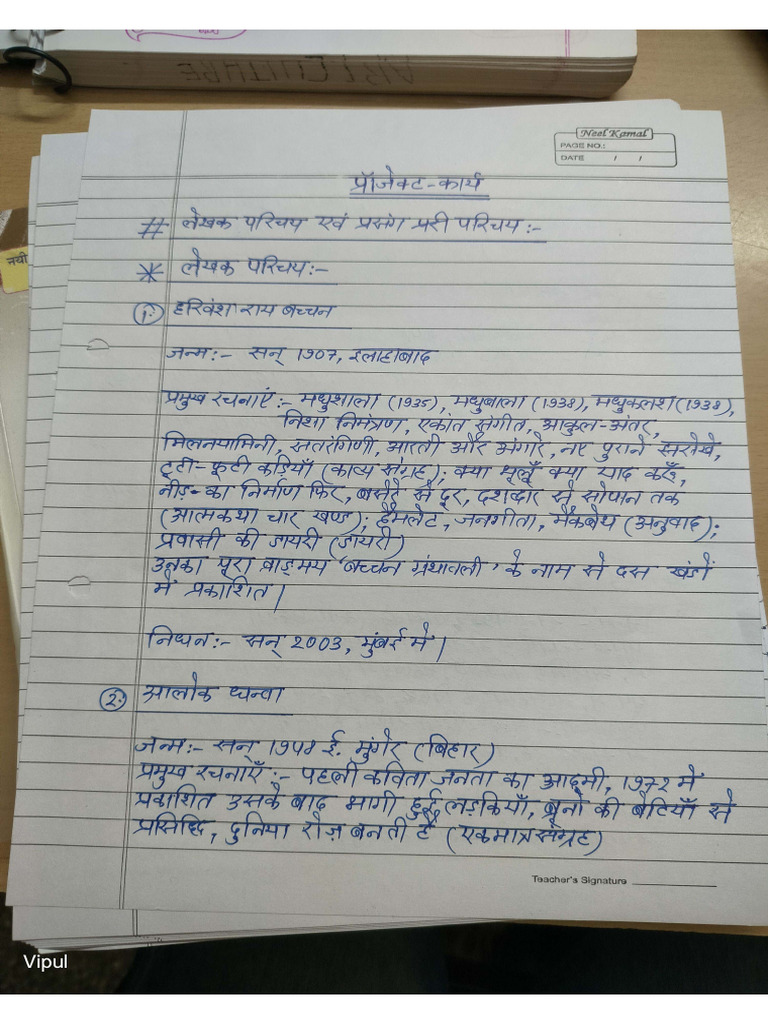 ARICULTURE
Neel Kamal
PAGE NO.:
DATE / /
नयी
प्रॉजेक्ट-कार्य
# लेखक परिचय एवं प्रसंग परी परिचय :-
* लेखक परिचय:-
1. हरिवंश राय बच्चन
जन्म:- सन् 1907, इलाहाबाद
प्रमुख रचनाएं:- मधुशाला (1935), मधुबाला (1938), मधुकलश (1938),
निशा निमंत्रण, एकांत संगीत, आकुल-अंतर,
मिलनयामिनी, सतरंगिणी, आरती और अंगारे, नए पुराने झरोखे,
टूटी-फूटी कड़ियाँ (काव्य संग्रह); क्या भूलूँ क्या याद करूँ,
नीड़-का निर्माण फिर, बसेरे से दूर, दशद्वार से सोपान तक
(आत्मकथा चार खण्ड); हैमलेट, जनगीता, मैकबेथ (अनुवाद);
प्रवासी की डायरी (डायरी)
उनका पूरा वाङ्मय 'बच्चन ग्रंथावली' के नाम से दस खंडों
में प्रकाशित।
निधन:- सन् 2003, मुंबई में।
2. आलोक धन्वा
जन्म:- सन् 1948 ई. मुंगेर (बिहार)
प्रमुख रचनाएँ:- पहली कविता जनता का आदमी, 1972 में
प्रकाशित उसके बाद भागी हुई लड़कियाँ, ब्रूनो की बेटियाँ से
प्रसिद्धि, दुनिया रोज़ बनती है (एकमात्र संग्रह)
Teacher's Signature
Vipul